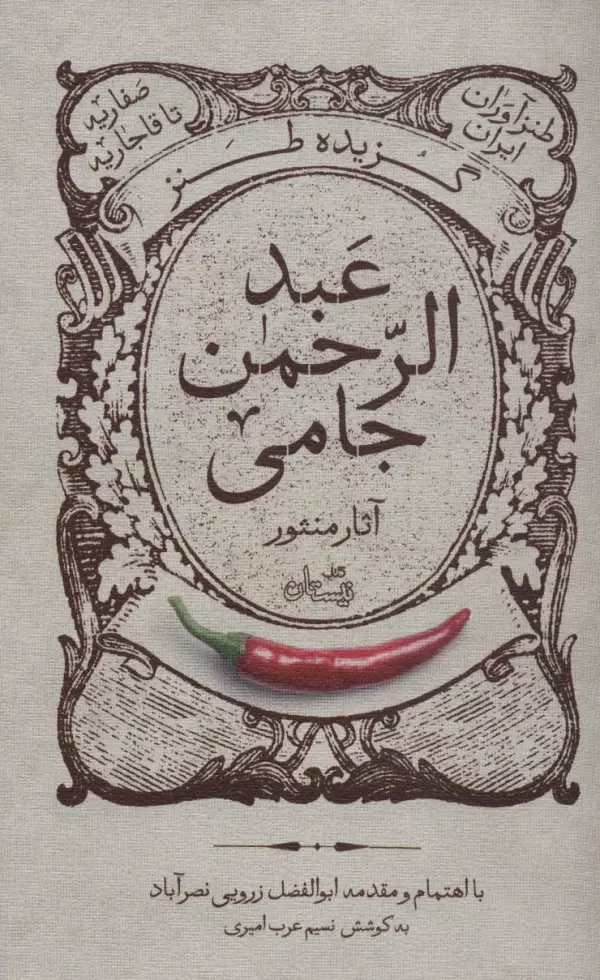 طنزآوران
ایران
صفاریه
تا قاجاریه
گزیده طنز
عَبد
الرّحمٰن
جامی
آثار منثور
کتاب
نیستان
با اهتمام و مقدمه ابوالفضل زرویی نصرآباد
به کوشش نسیم عرب امیری